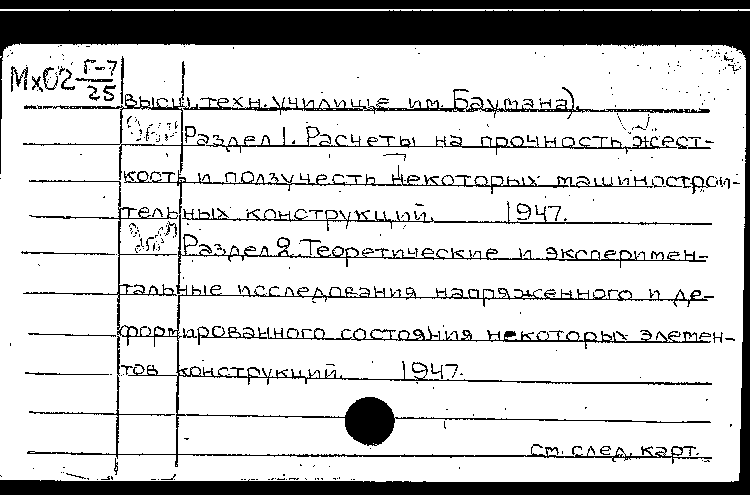 Мх02 Г-7
25
высш. техн. училище им. Баумана).
Раздел 1. Расчеты на прочность, жест-
кость и ползучесть некоторых машинострои-
тельных конструкций. 1947.
Раздел 2. Теоретические и эксперимен-
тальные исследования напряженного и де-
формированного состояния некоторых элемен-
тов конструкций. 1947.
см. след. карт.